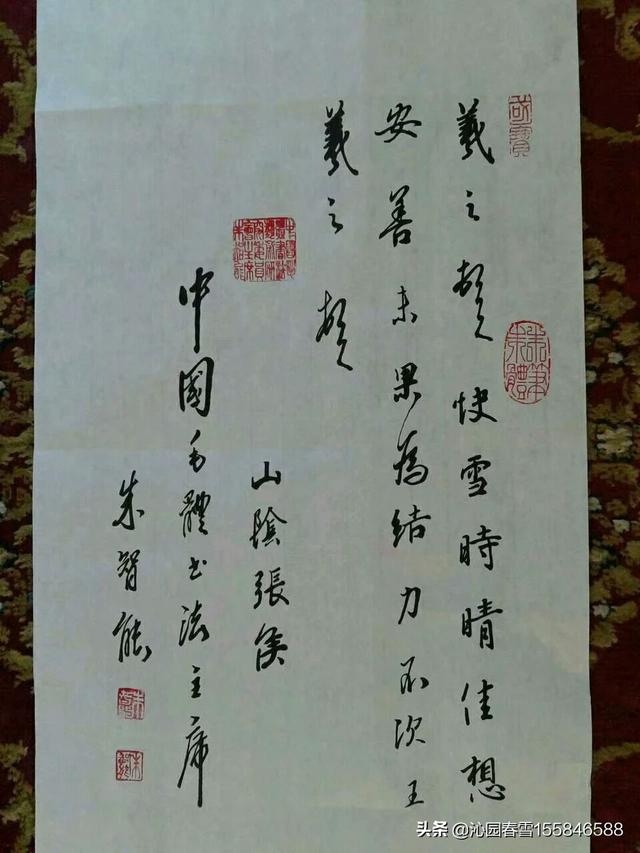 羲之頓首快雪時晴佳想
安善未果為結力不次王
羲之頓首
山陰張侯
中國毛體书法主席
朱智能
國寶
头条 @沁园春雪155846588